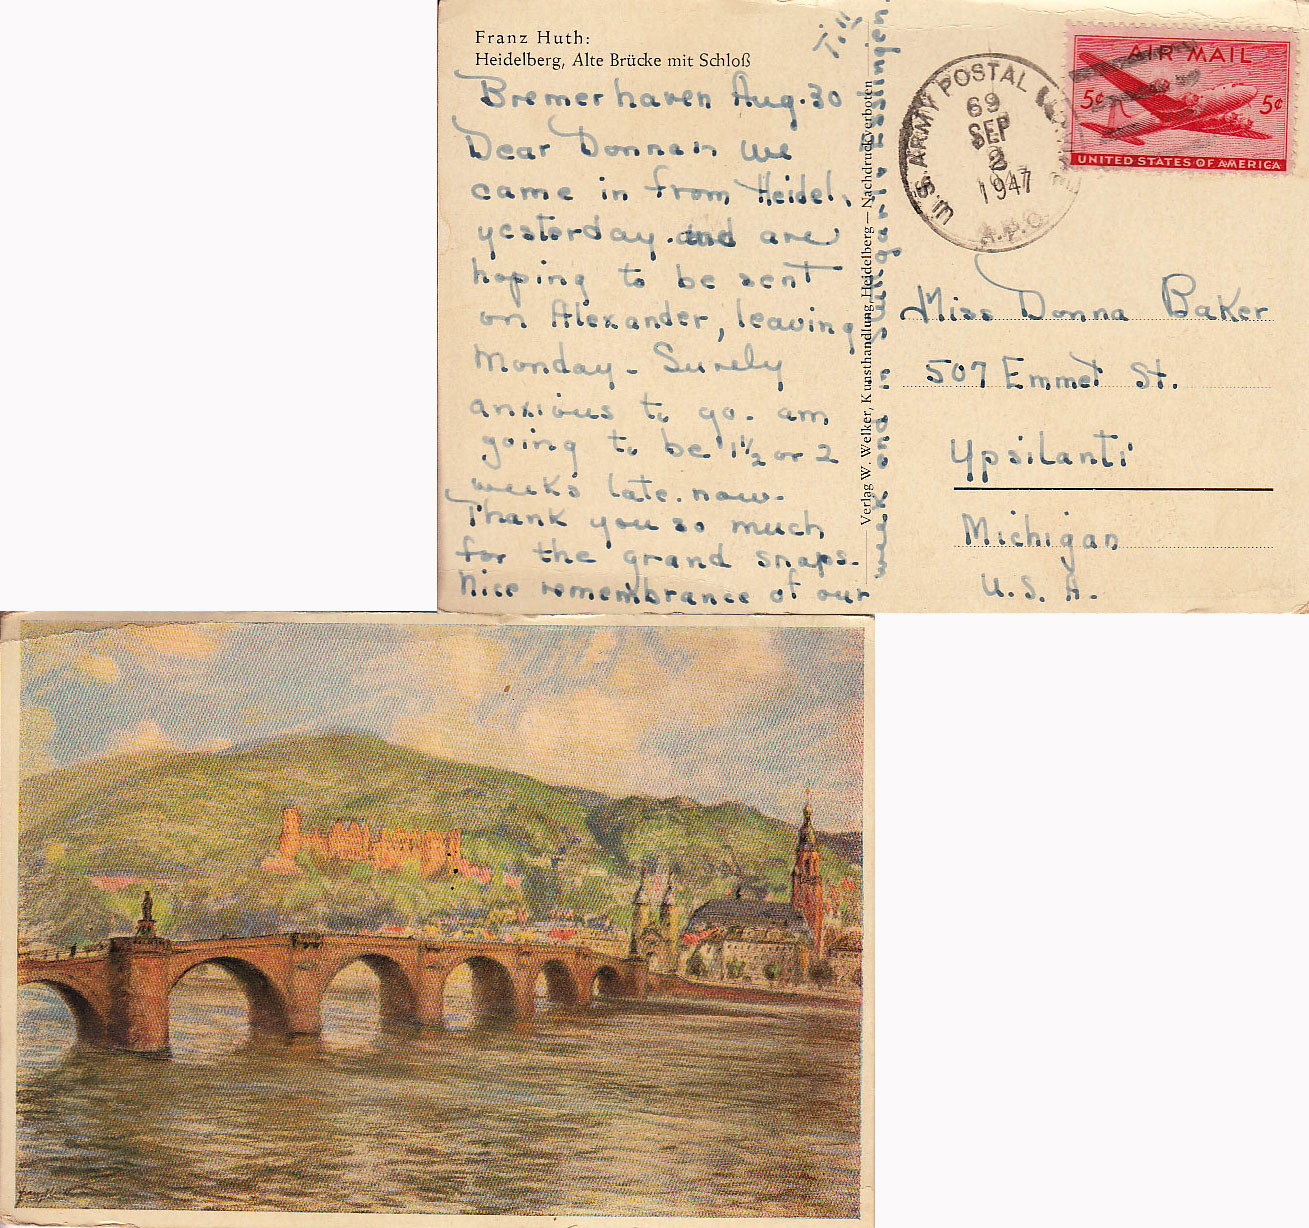 Franz Huth:
Heidelberg, Alte Brücke mit Schloß
Bremerhaven Aug. 30
Dear Donna:, we
came in from Heidel.
yesterday. and are
hoping to be sent
on Alexander, leaving
Monday - Surely
anxious to go. am
going to be 1½ or 2
weeks late. now.
Thank you so much
for the grand snaps.
Nice remembrance of our
week end in Stuttgart & Esslingen.
Till
Verlag W. Welker, Kunsthandlung, Heidelberg — Nachdruck verboten
U.S. ARMY POSTAL
69
SEP
2
1947
A.P.O.
AIR MAIL
5¢ 5¢
UNITED STATES OF AMERICA
Miss Donna Baker
507 Emmet St.
Ypsilanti
Michigan
U.S.A.